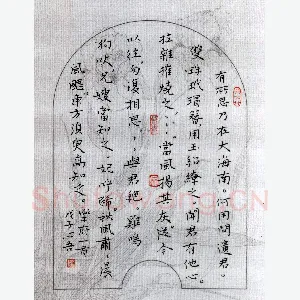 有所思乃在大海南。何用問遺君。
雙珠玳瑁簪用玉紹繚之。聞君有他心。
拉雜摧燒之、、、當風揚其灰。從今
以往勿復相思、、與君絕雞鳴
狗吠兄嫂當知之。妃呼豨秋風肅、晨
風颸東方須臾高知之。